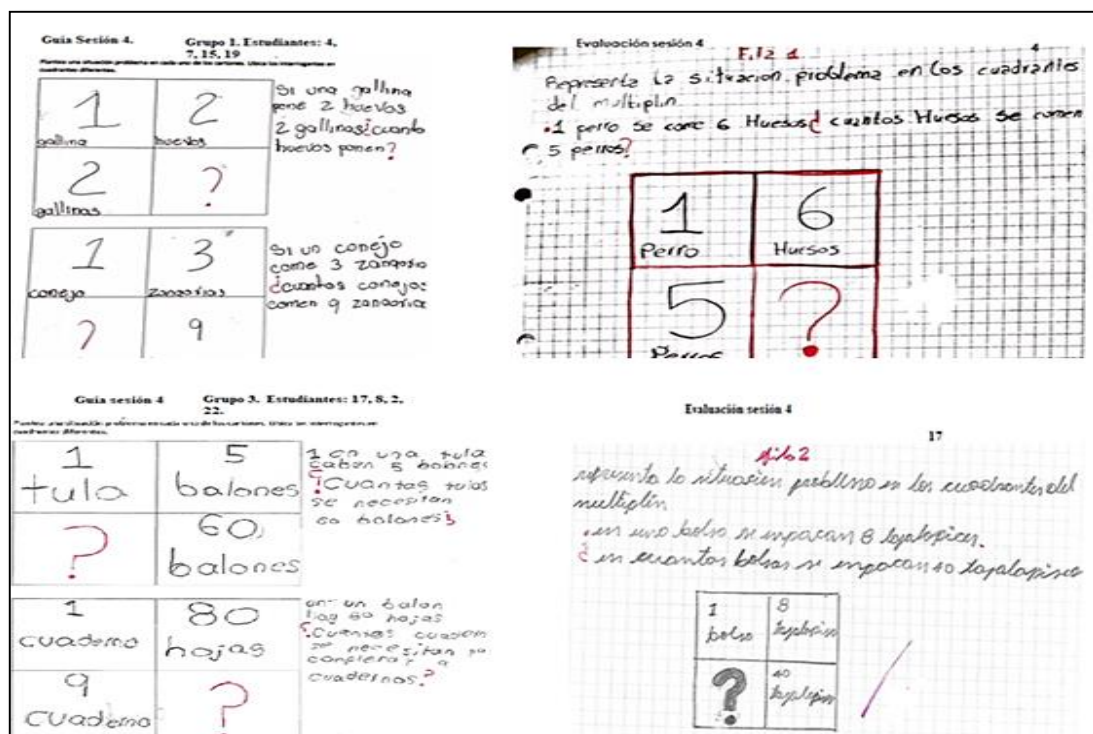 Guia Sesión 4.
Grupo 1. Estudiantes: 4,
7, 15, 19
Plantea una situación problema en cada uno de los cartones. Ubica los interrogantes en
cuadrantes diferentes.
1
gallina
2
huevos
2
gallinas
?
Si una gallina
pone 2 huevos
2 gallinas¿cuanto
huevos ponen?
1
conejo
3
zanaorias
?
9
Si un conejo
come 3 zanaoria
¿cuantos conejos
comen 9 zanaoria
Evaluación sesión 4
Fila 1
4
Representa la situacion problema en los cuadrantes
del multiplin
.1 perro se come 6 Huesos¿ cuantos Huesos se comen
5 perros?
1
Perro
6
Huesos
5
Perros
?
Guia sesión 4
Grupo 3. Estudiantes: 17, 8, 2,
22.
Plantea una situación problema en cada uno de los cartones. Ubica los interrogantes en
cuadrantes diferentes.
1
tula
5
balones
?
60
balones
1 en una tula
caben 5 balones
¿Cuantas tulas
se necesitan
60 balones?
1
cuaderno
80
hojas
9
cuaderno
?
en un balon
hay 80 hojas
¿Cuantas cuadern
se necesitan pa
completar 9
cuadernos.?
Evaluación sesión 4
17
fila 2
representa la situación problema en los cuadrantes del
multiplin
.en una bolsa se empacan 8 tajalapices.
¿ en cuantas bolsas se empacan 40 tajalapices
1
bolsa
8
tajalapices
?
40
tajalapices